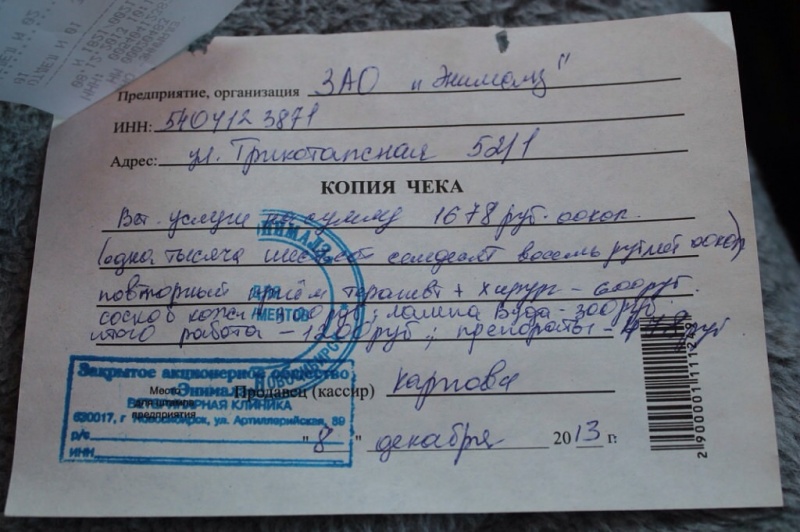 Предприятие, организация ЗАО "Энималз"
ИНН: 5404123871
Адрес: ул. Трикотажная 52/1
КОПИЯ ЧЕКА
Вет. услуги на сумму 1678 руб. 00коп.
(одна тысяча шестьсот семдесят восемь рублей 00коп)
повторный приём терапевт + хирург - 600руб.
соскоб кожи - 300руб; лампа Вуда - 300руб.
итого работа - 1200руб; препараты - 478руб
Закрытое акционерное общество
Энималз
ВЕТЕРИНАРНАЯ КЛИНИКА
630017, г. Новосибирск, ул. Артиллерийская, 89
р/с
ИНН
Место
для штампа
предприятия
Продавец (кассир) Карпова
"8" декабря 2013 г.
ДЛЯ
НОВОСИБИРСК
2 900001 111243